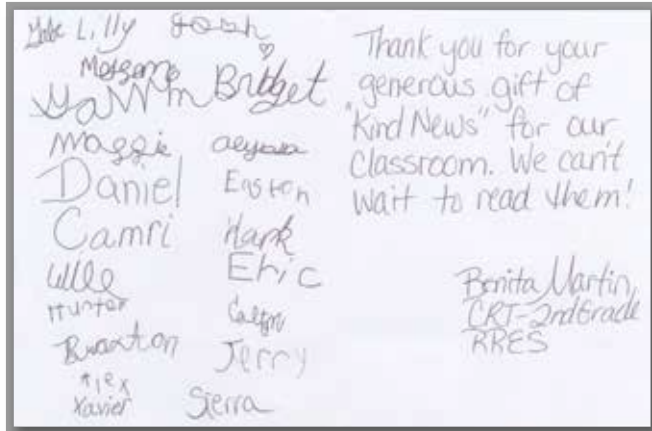 Gabe Lilly Josh
Bridget
Maggie alyssa
Daniel Easton
Camri Hank
Eric
Hunter
Braxton Jerry
Alex
Xavier Sierra
Thank you for your
generous gift of
"Kind News" for our
Classroom. We can't
wait to read them!
Benita Martin,
CRT-2nd Grade
RRES